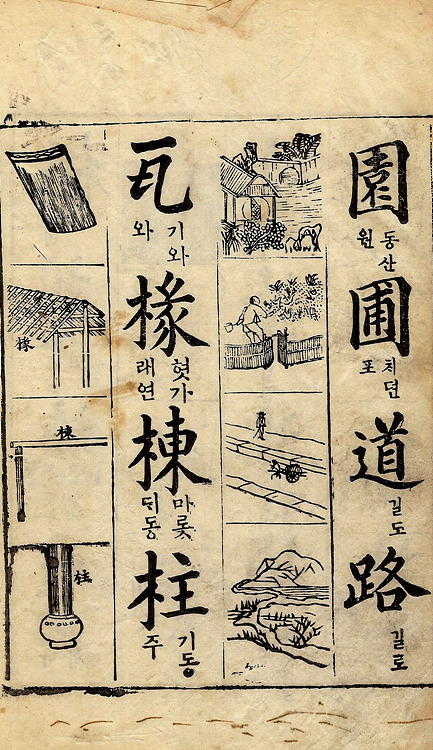 園
동산 원
圃
ᄎᆡ뎐 포
道
길 도
路
길 로
瓦
기와 와
椽
혓가래 연
棟
마룻ᄃᆡ 동
柱
기동 주
椽
棟
柱